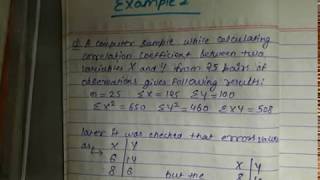 Example 2
Q. A computer sample while calculating
correlation coefficient between two
variables X and Y from 25 pairs of
observations gives following results:
n = 25 Σx = 125 Σy = 100
Σx² = 650 Σy² = 460 Σxy = 508
later it was checked that error values
as → X | Y
6 | 14
8 | 6 but the X | Y
8